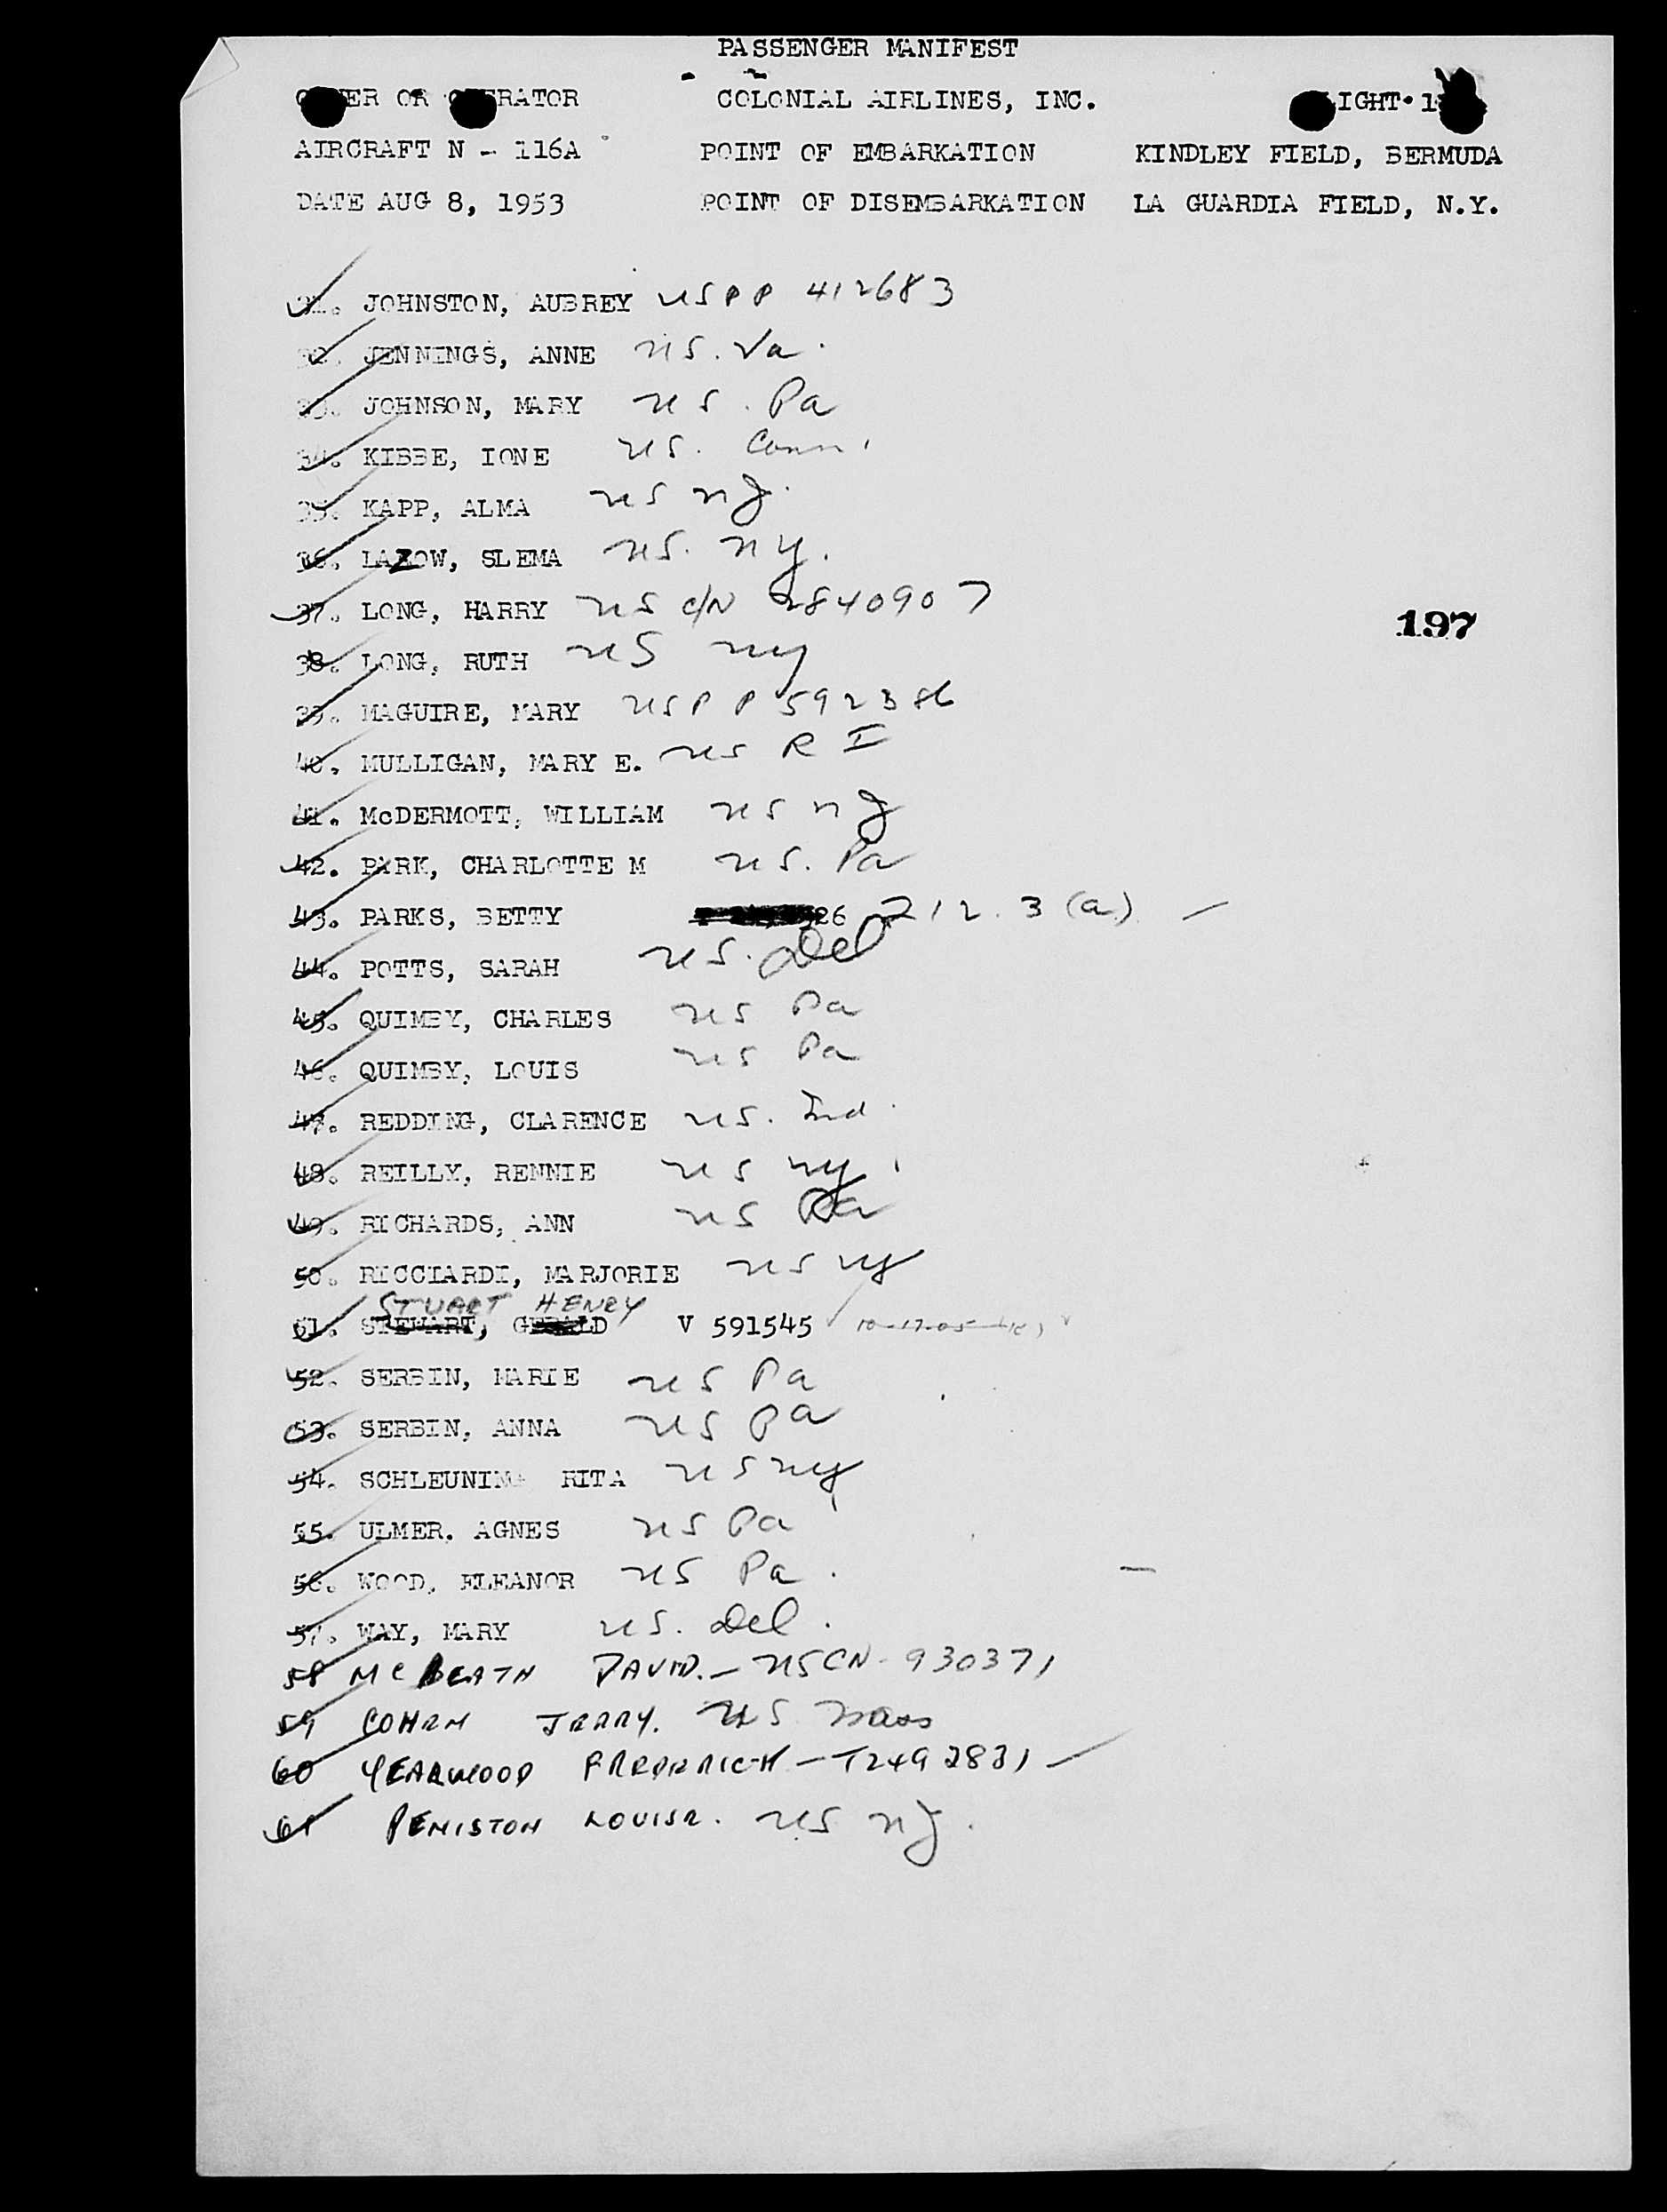 PASSENGER MANIFEST
OR COLONIAL AIRLINES, INC.
AIRCRAFT N - 116A POINT OF EMBARKATION KINDLEY FIELD, BERMUDA
DATE AUG 8, 1953 POINT OF DISEMBARKATION LA GUARDIA FIELD, N.Y.
31. JOHNSTON, AUBREY US PP 412683
32. JENNINGS, ANNE US. Va.
33. JOHNSON, MARY US. Pa
34. KIBBE, IONE US. Conn.
35. KAPP, ALMA US NJ.
36. LAZOW, SLEMA US. NY.
37. LONG, HARRY US C/N 2840907
197
38. LONG, RUTH US NY
39. MAGUIRE, MARY US PP 592386
40. MULLIGAN, MARY E. US R I
41. McDERMOTT, WILLIAM US NJ
42. PARK, CHARLOTTE M US. Pa
43. PARKS, BETTY 26 212.3(a) -
44. POTTS, SARAH US. Del
45. QUIMBY, CHARLES US Pa
46. QUIMBY, LOUIS US Pa
47. REDDING, CLARENCE US. Ind.
48. REILLY, RENNIE US NY
49. RICHARDS, ANN US Pa
50. RICCIARDI, MARJORIE US NY
STUART HENRY
51. STEWART, GERALD V 591545
52. SERBIN, MARIE US Pa
53. SERBIN, ANNA US Pa
54. SCHLEUNING RITA US NY
55. ULMER. AGNES US Pa
56. WOOD, ELEANOR US Pa.
57. WAY, MARY US. Del.
58 McBEATH DAVID. - US CN - 930371
59 COHEN JERRY. US Mass
60 YEARWOOD FREDERICK - T2492831 -
61 PENISTON LOUISE. US NJ.